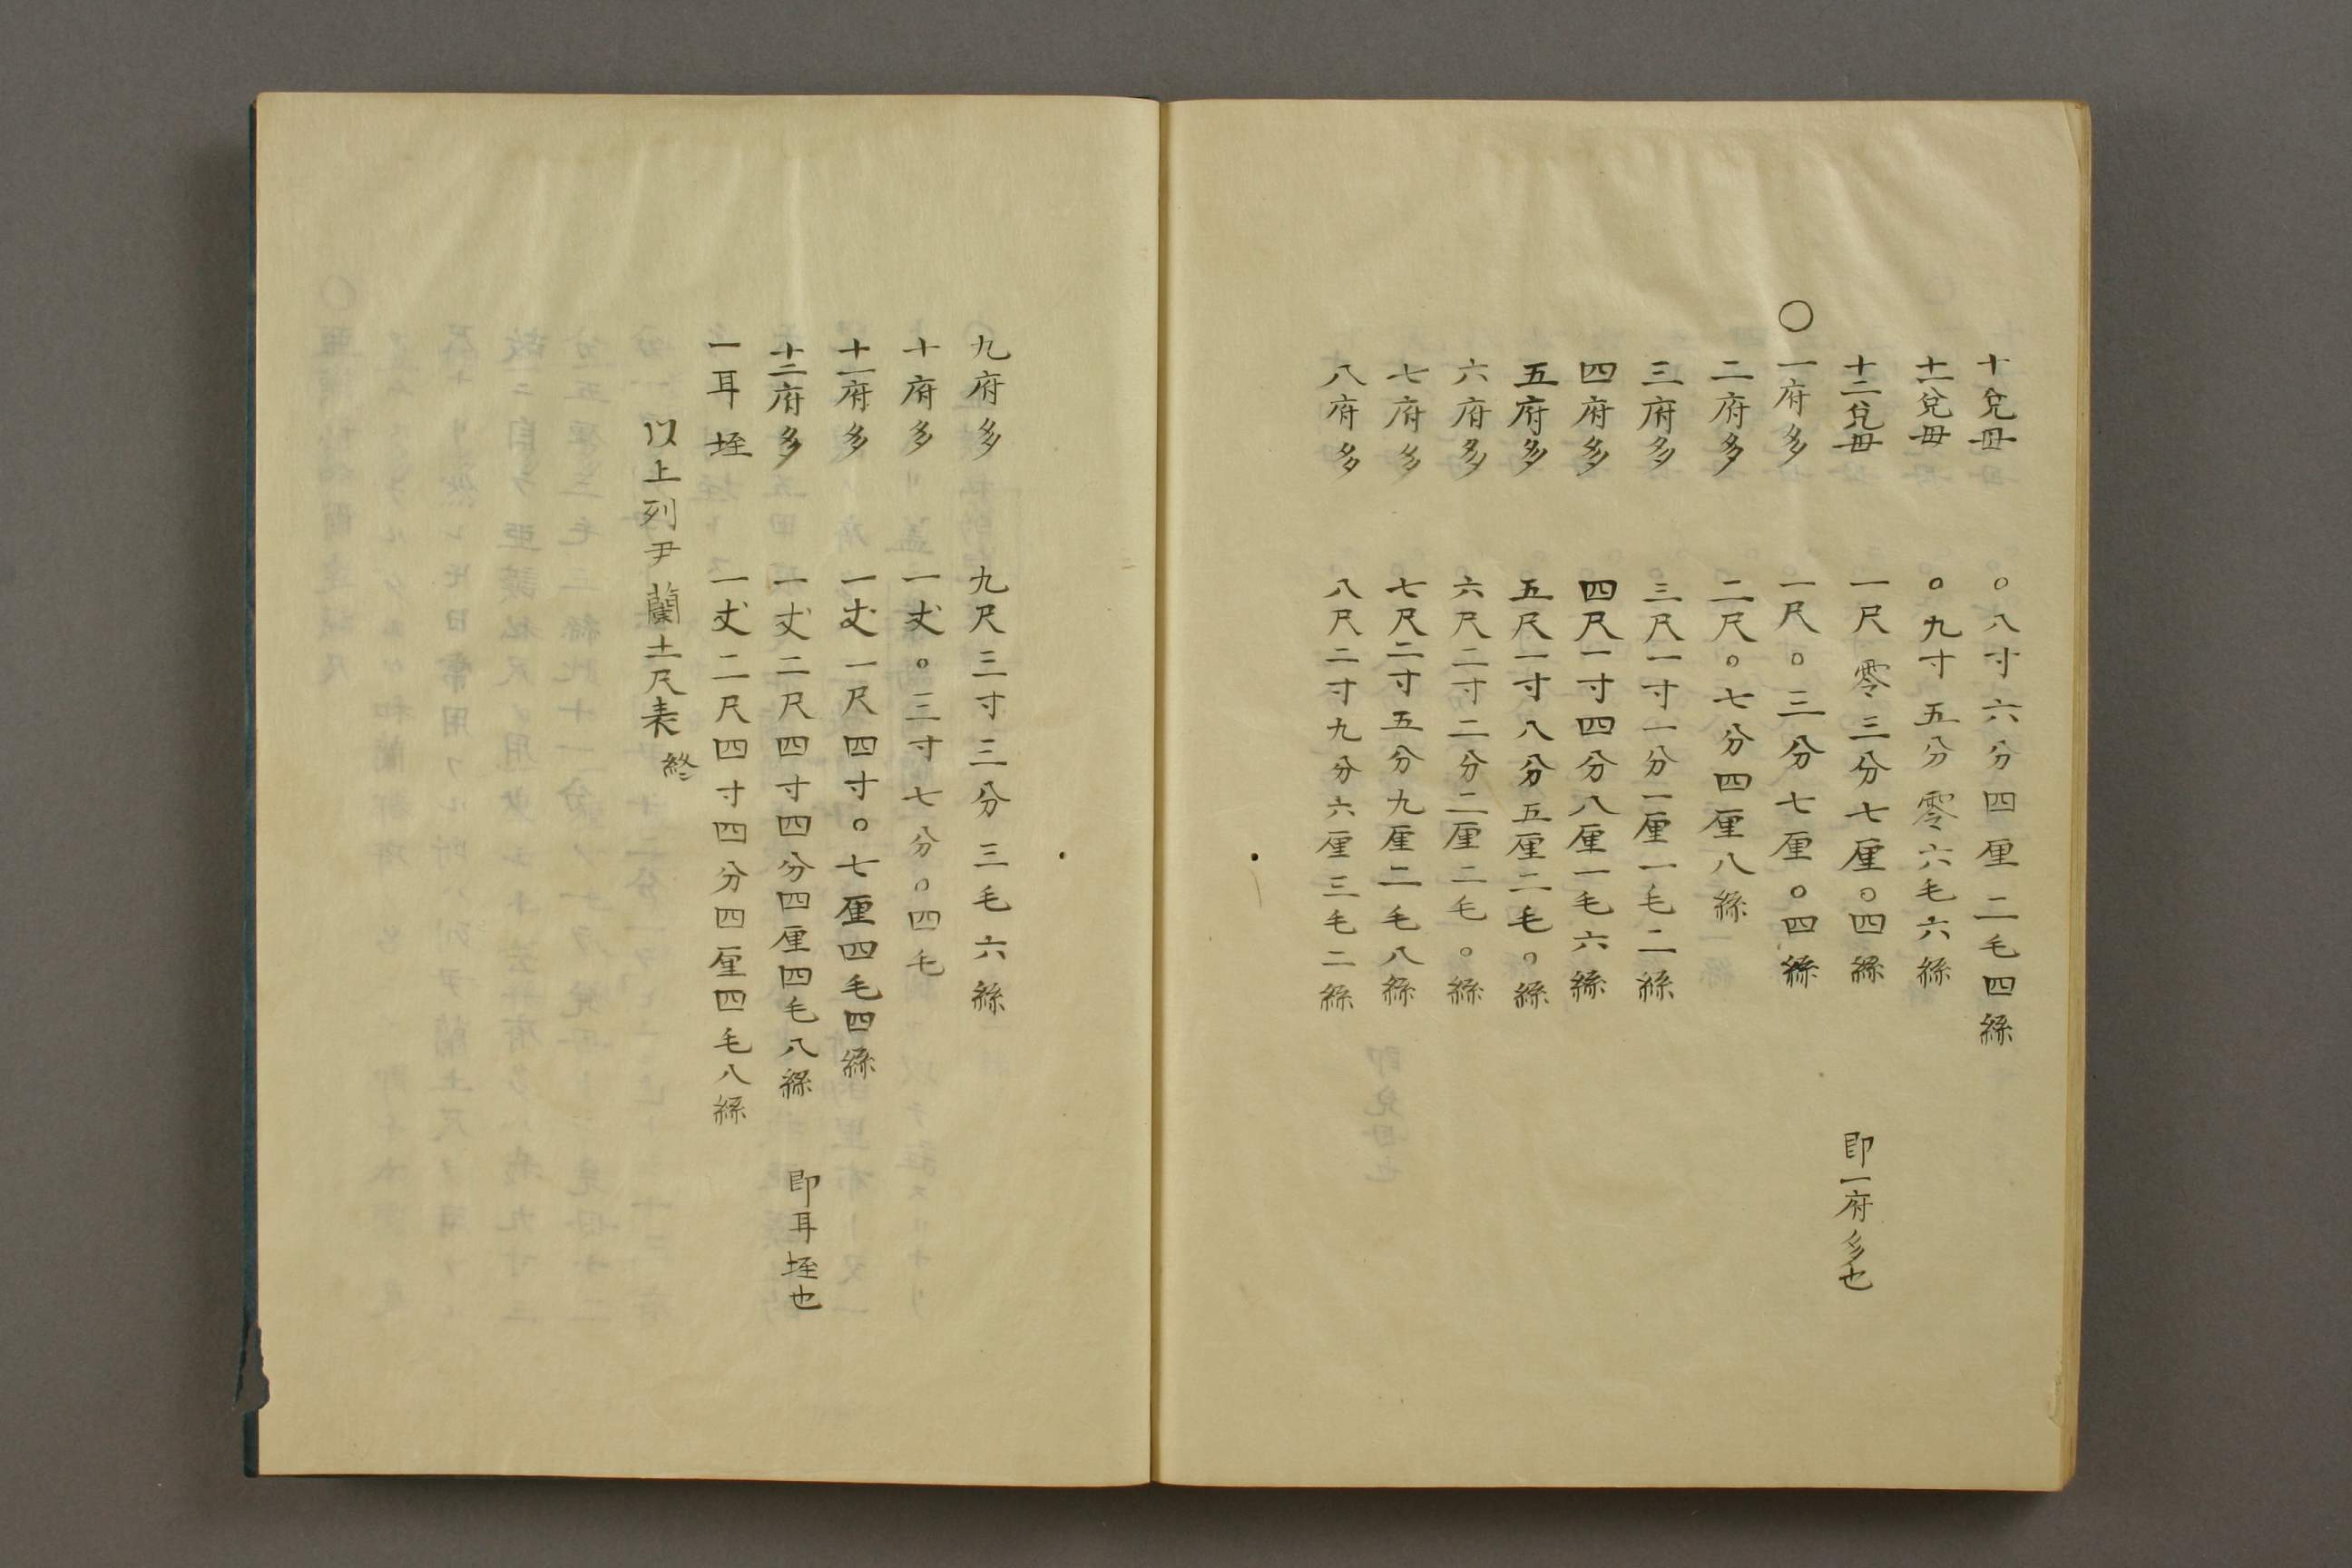 十兌毋 〇八寸六分四厘二毛四絲
十一兌毋 〇九寸五分零六毛六絲
十二兌毋 一尺零三分七厘〇四絲 即一府多也
〇一府多 一尺〇三分七厘〇四絲
二府多 二尺〇七分四厘八絲
三府多 三尺一寸一分一厘一毛二絲
四府多 四尺一寸四分八厘一毛六絲
五府多 五尺一寸八分五厘二毛〇絲
六府多 六尺二寸二分二厘二毛〇絲
七府多 七尺二寸五分九厘二毛八絲
八府多 八尺二寸九分六厘三毛二絲
九府多 九尺三寸三分三毛六絲
十府多 一丈〇三寸七分〇四毛
十一府多 一丈一尺四寸〇七厘四毛四絲
十二府多 一丈二尺四寸四分四厘四毛八絲 即耳垤也
一耳垤 一丈二尺四寸四分四厘四毛八絲
以上列尹蘭土尺表終